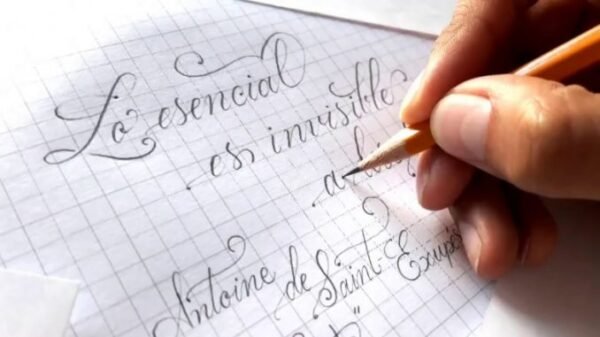 Lo esencial
es invisible
a
Antoine de Saint Exupé